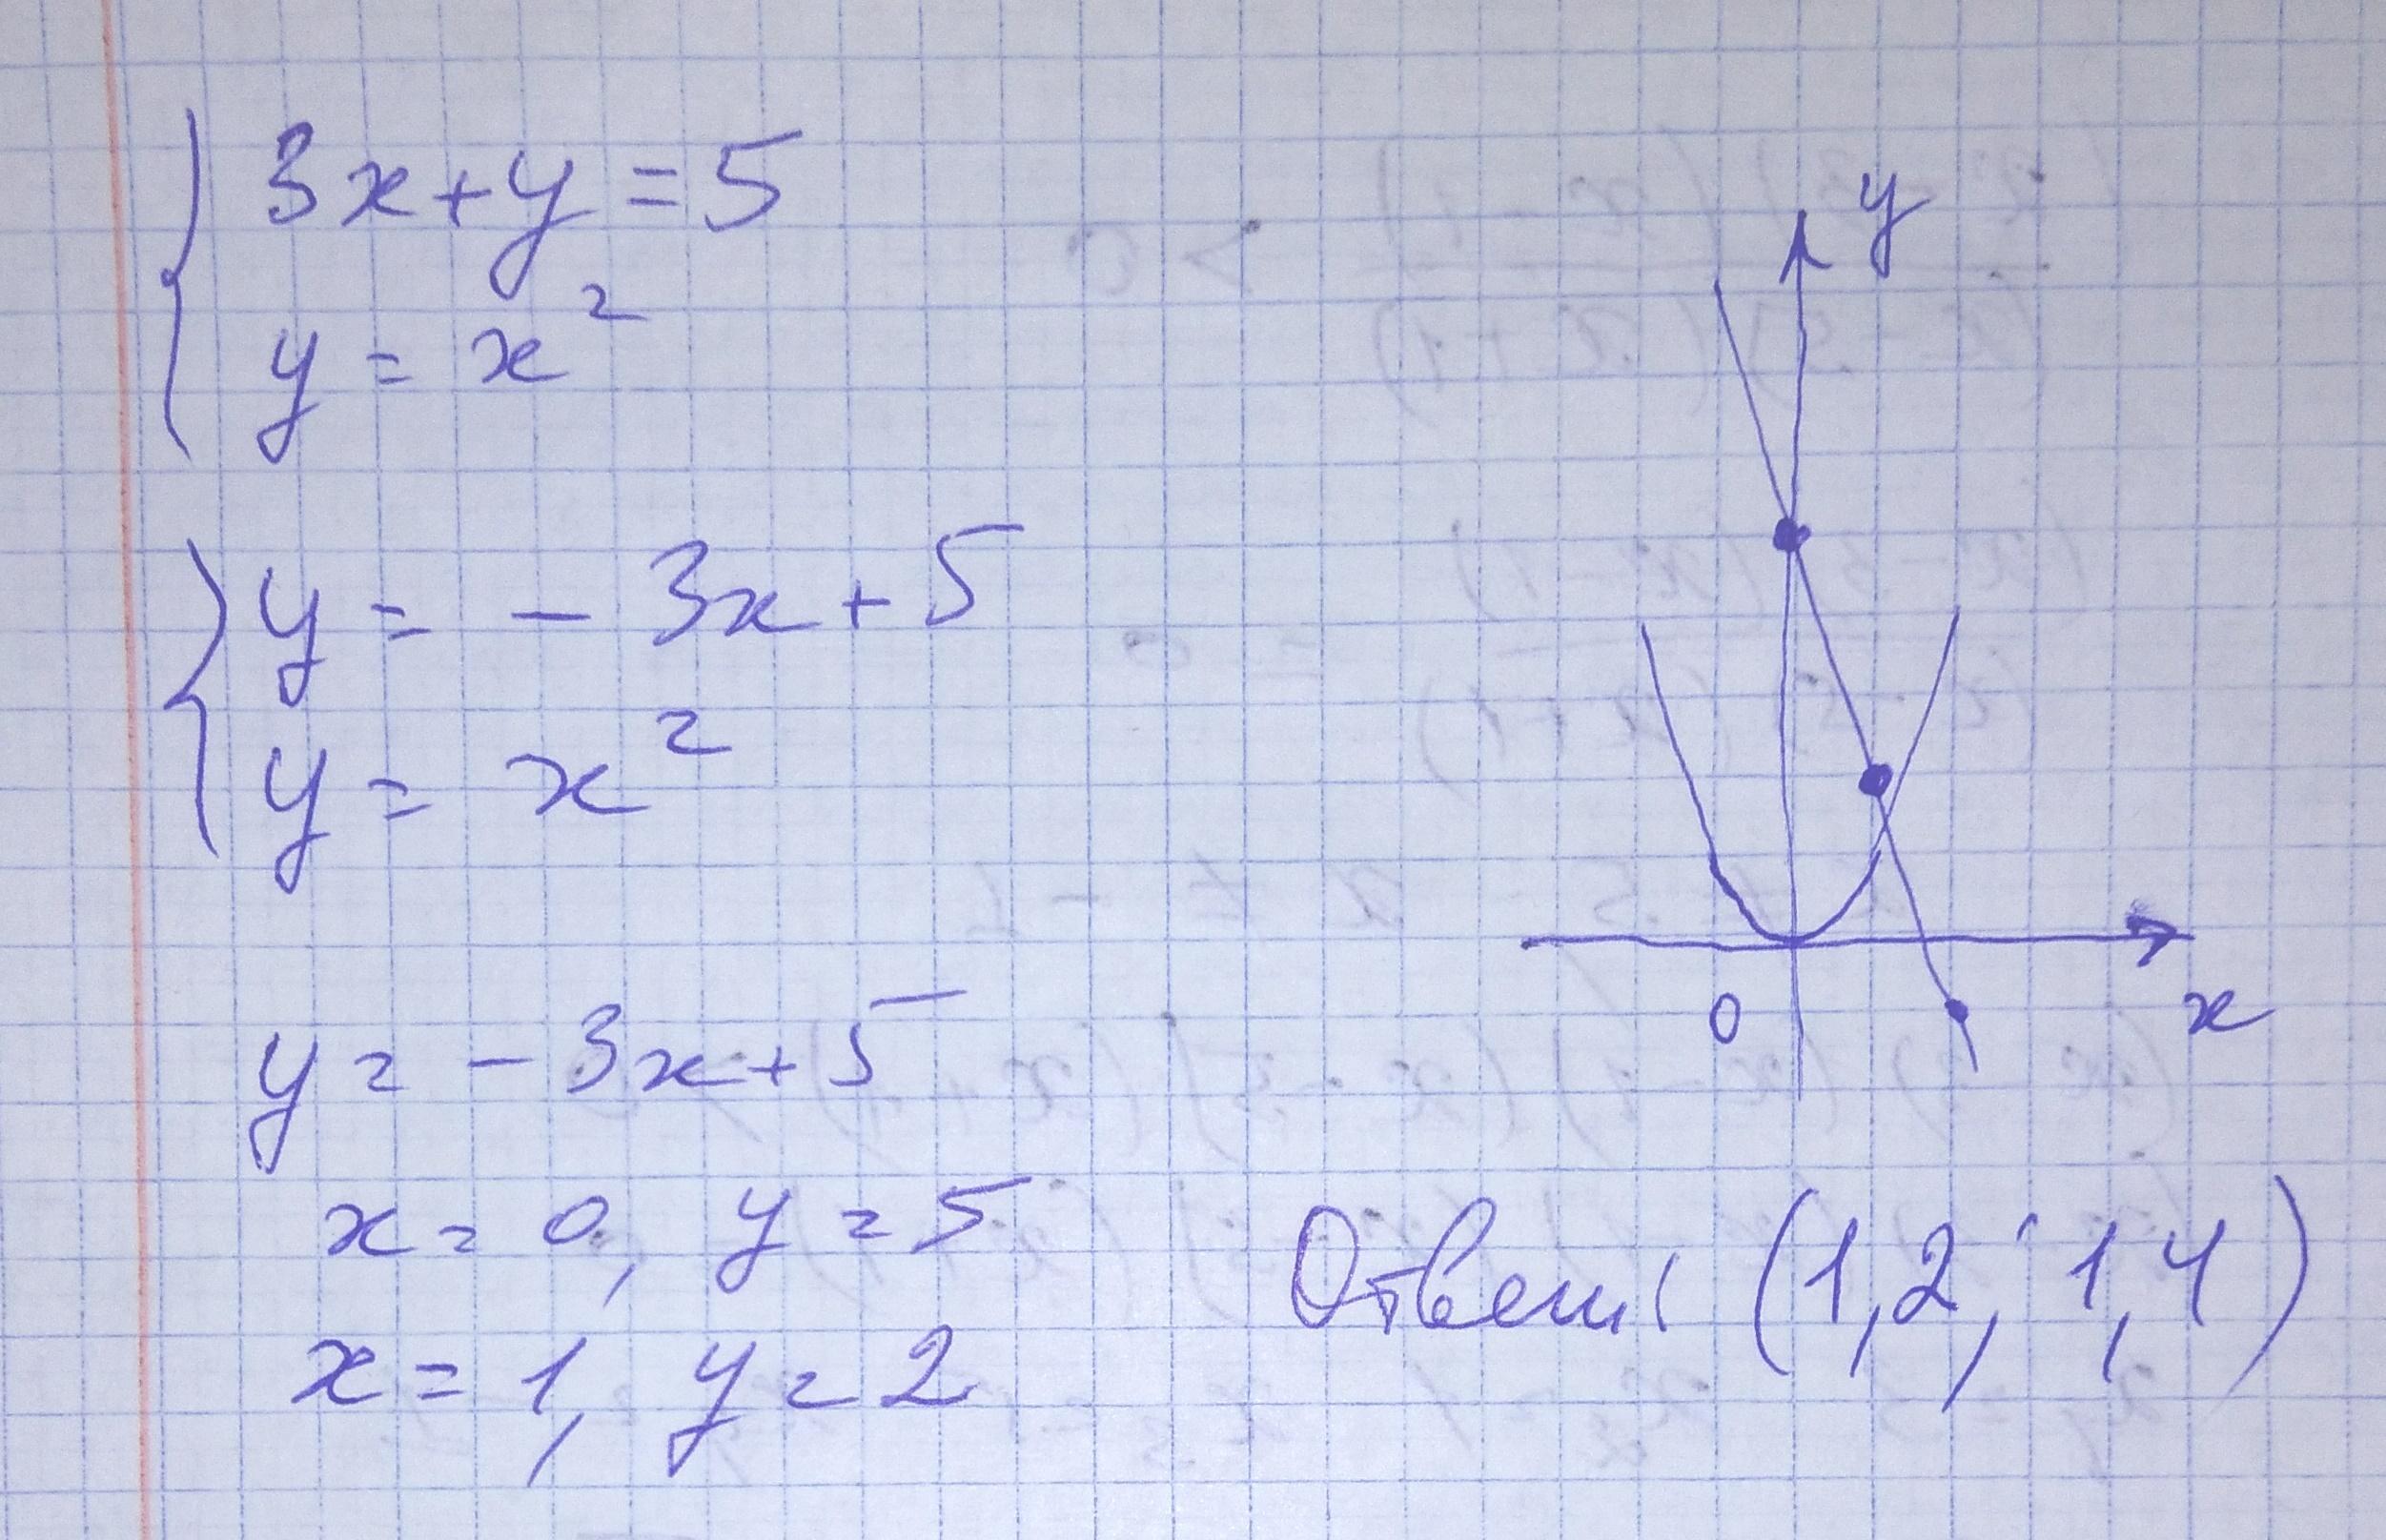 3x+y=5
y = x²
y = - 3x + 5
y = x²
y = - 3x + 5
x = 0, y = 5
x = 1, y = 2
y
0
x
Ответ: (1,2; 1,4)